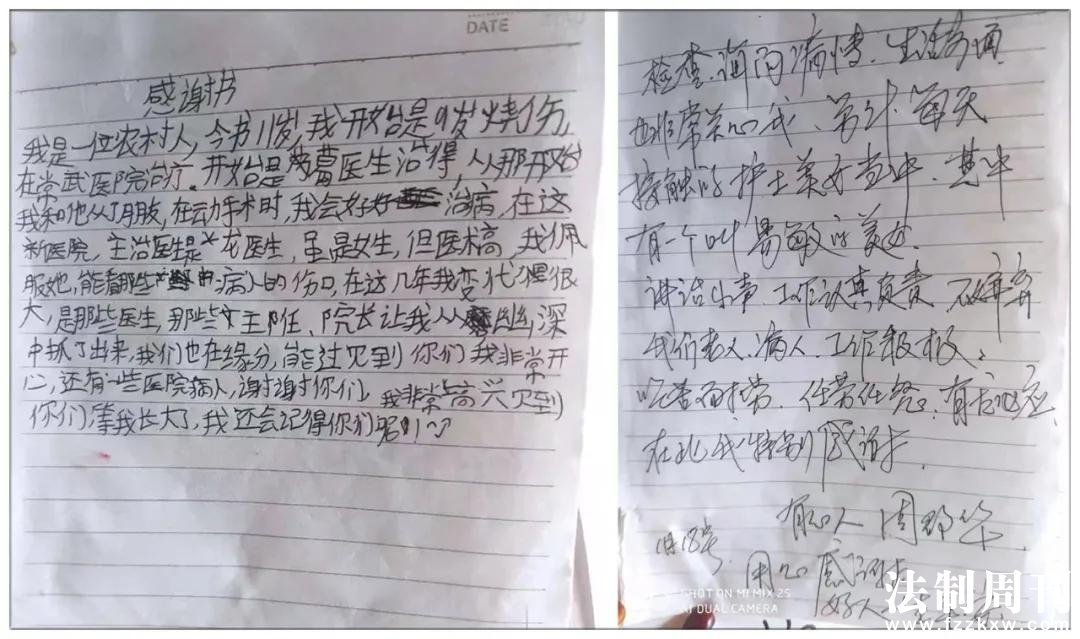 DATE
感谢书
我是一位农村人,今书11岁,我开始是9岁烧伤,
在常武医院治疗.开始是葛医生治得,从那开始
我和他从了朋友,在动手术时,我会好好治病,在这
新医院,主治医生是龙医生,虽是女生,但医术高,我佩
服她,能看那些病人的伤口,在这几年我变化很
大,是那些医生,那些主任、院长让我从幽深
中抓了出来,我们也在缘分,能过见到你们我非常开
心,还有一些医院病人,谢谢你们,我非常高兴见到
你们,等我长大了,我还会记得你们
检查.询问病情.生活方面
也非常关心我、另外.每天
接触的护士美女当中.其中
有一个叫易敏的美女.
讲话小声.工作认真负责.不嫌弃
我们老人.病人.工作积极.
吃苦而耐劳.任劳任怨.
在此我特别感谢.
有心人 周
用心感谢
好人
SHOT ON MI MIX 2S
AI DUAL CAMERA
法制周刊
www.fzzkxw.com